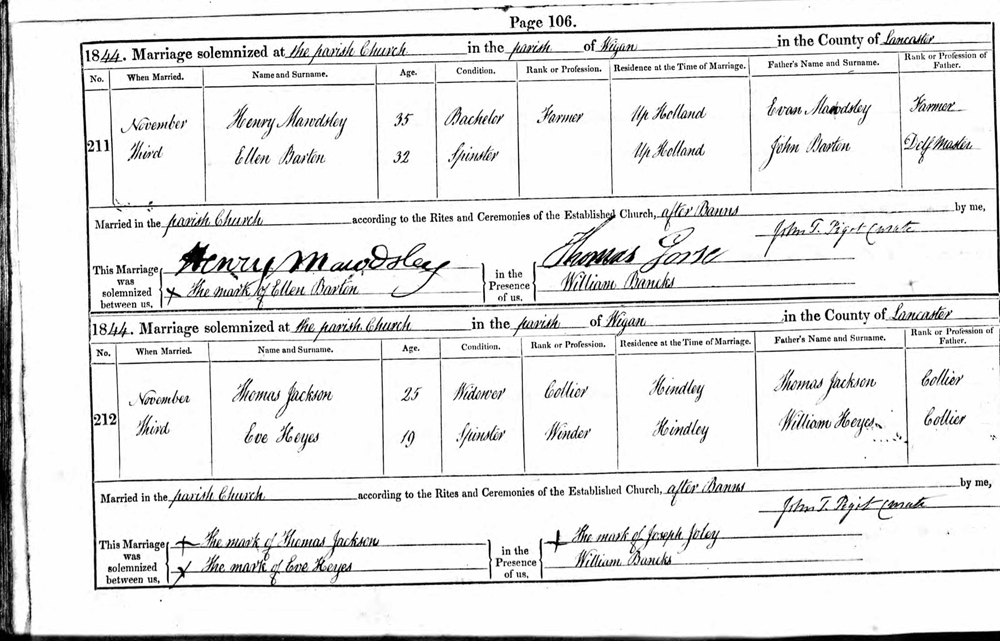 Page 106.
1844. Marriage solemnized at the parish Church in the parish of Wigan in the County of Lancaster
No. When Married. Name and Surname. Age. Condition. Rank or Profession. Residence at the Time of Marriage. Father's Name and Surname. Rank or Profession of Father.
211 November Third
Henry Mawdsley 35 Bachelor Farmer Up Holland Evan Mawdsley Farmer
Ellen Barton 32 Spinster Up Holland John Barton Delf Master
Married in the parish Church according to the Rites and Ceremonies of the Established Church, after Banns by me,
John T. Pigot Curate
This Marriage was solemnized between us, Henry Mawdsley in the Presence of us, Thomas
X The mark of Ellen Barton William Bancks
1844. Marriage solemnized at the parish Church in the parish of Wigan in the County of Lancaster
No. When Married. Name and Surname. Age. Condition. Rank or Profession. Residence at the Time of Marriage. Father's Name and Surname. Rank or Profession of Father.
212 November Third
Thomas Jackson 25 Widower Collier Hindley Thomas Jackson Collier
Eve Heyes 19 Spinster Winder Hindley William Heyes Collier
Married in the parish Church according to the Rites and Ceremonies of the Established Church, after Banns by me,
John T. Pigot Curate
This Marriage was solemnized between us, X The mark of Thomas Jackson in the Presence of us, X The mark of Joseph
X The mark of Eve Heyes William Bancks